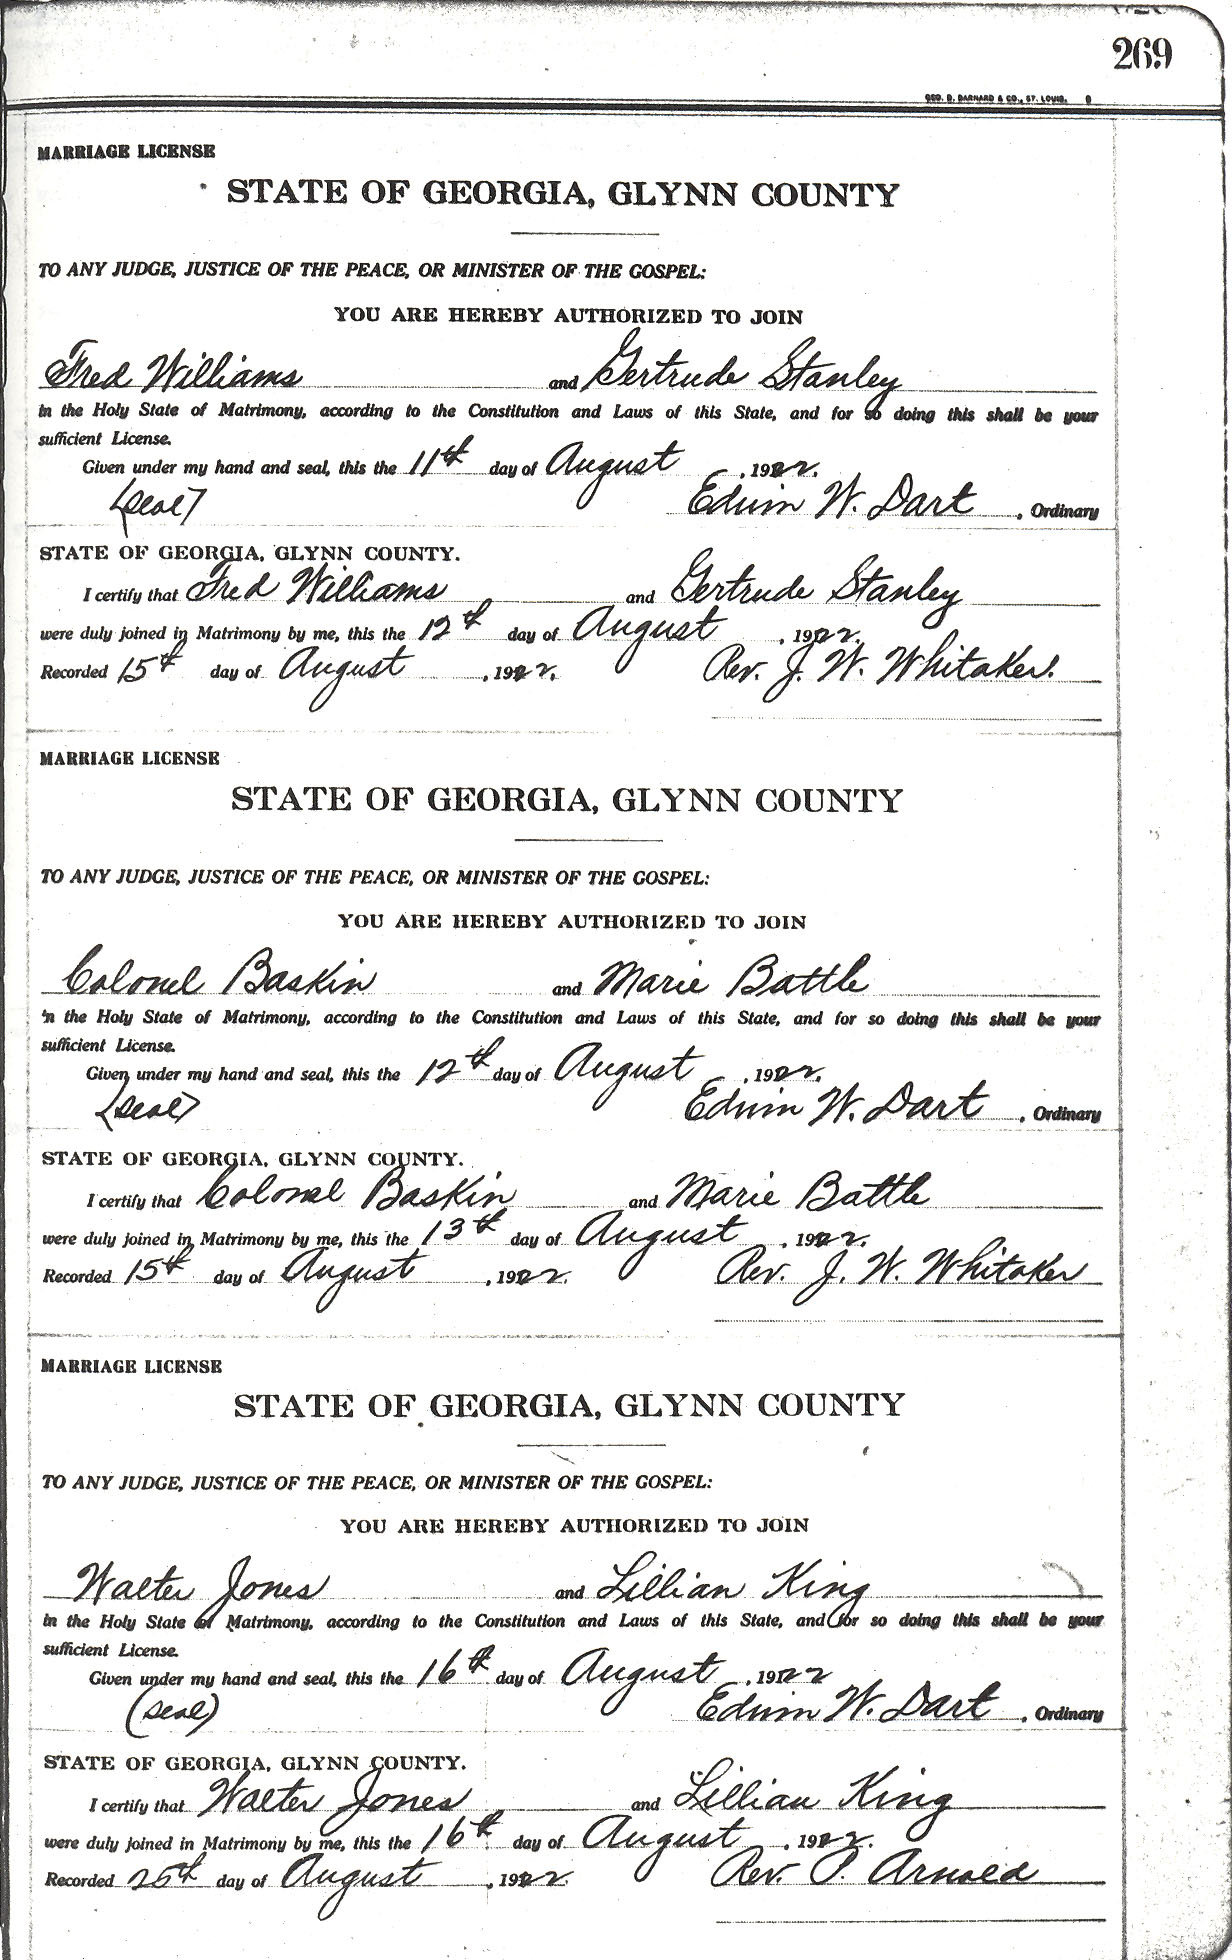 269
GEO. D. BARNARD & CO., ST. LOUIS.
MARRIAGE LICENSE
STATE OF GEORGIA, GLYNN COUNTY
TO ANY JUDGE, JUSTICE OF THE PEACE, OR MINISTER OF THE GOSPEL:
YOU ARE HEREBY AUTHORIZED TO JOIN
Fred Williams and Gertrude Stanley
in the Holy State of Matrimony, according to the Constitution and Laws of this State, and for so doing this shall be your
sufficient License.
Given under my hand and seal, this the 11th day of August, 1922.
(seal) Edwin W. Dart, Ordinary
STATE OF GEORGIA, GLYNN COUNTY.
I certify that Fred Williams and Gertrude Stanley
were duly joined in Matrimony by me, this the 12th day of August, 1922.
Recorded 15th day of August, 1922. Rev. J. W. Whitaker.
MARRIAGE LICENSE
STATE OF GEORGIA, GLYNN COUNTY
TO ANY JUDGE, JUSTICE OF THE PEACE, OR MINISTER OF THE GOSPEL:
YOU ARE HEREBY AUTHORIZED TO JOIN
Colonel Baskin and Marie Battle
in the Holy State of Matrimony, according to the Constitution and Laws of this State, and for so doing this shall be your
sufficient License.
Given under my hand and seal, this the 12th day of August, 1922.
(seal) Edwin W. Dart, Ordinary
STATE OF GEORGIA, GLYNN COUNTY.
I certify that Colonel Baskin and Marie Battle
were duly joined in Matrimony by me, this the 13th day of August, 1922.
Recorded 15th day of August, 1922. Rev. J. W. Whitaker
MARRIAGE LICENSE
STATE OF GEORGIA, GLYNN COUNTY
TO ANY JUDGE, JUSTICE OF THE PEACE, OR MINISTER OF THE GOSPEL:
YOU ARE HEREBY AUTHORIZED TO JOIN
Walter Jones and Lillian King
in the Holy State of Matrimony, according to the Constitution and Laws of this State, and for so doing this shall be your
sufficient License.
Given under my hand and seal, this the 16th day of August, 1922
(seal) Edwin W. Dart, Ordinary
STATE OF GEORGIA, GLYNN COUNTY.
I certify that Walter Jones and Lillian King
were duly joined in Matrimony by me, this the 16th day of August, 1922.
Recorded 25th day of August, 1922. Rev. P. Arnold